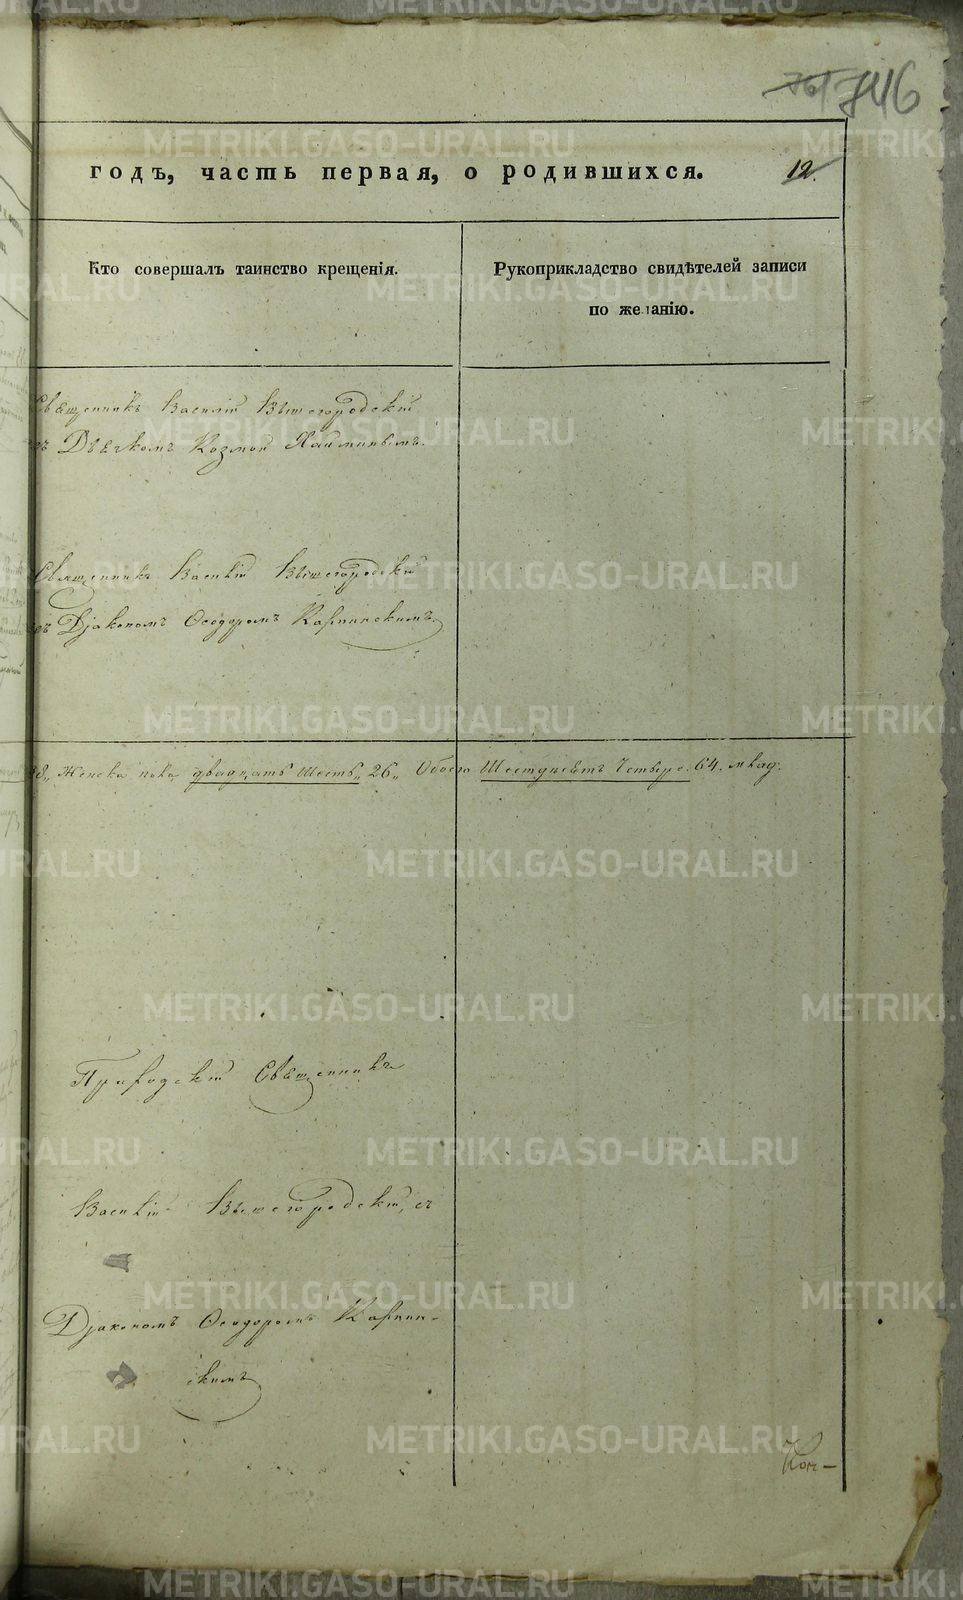 746
годъ, часть первая, о родившихся. 12.
Кто совершалъ таинство крещенія.
Рукоприкладство свидѣтелей записи
по желанію.
Священникъ Василій Вышегородскій
съ Дьячкомъ Козмой Хайминымъ.
Священникъ Василій Вышегородскій
съ Діакономъ Ѳеодоромъ Карпинскимъ.
38„ Женска пола двадцать шесть„ 26„ Обоего Шестдесятъ Четыре. 64. млад.
Приходскій Священникъ
Василій Вышегородскій, съ
Діакономъ Ѳеодоромъ Карпин-
скимъ
Кон-
METRIKI.GASO-URAL.RU